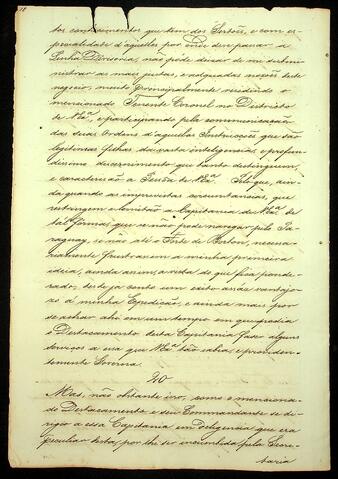 tos conhecimentos que tem dos Sertões, e com es-
pecialidade d'aquelles por onde deve passar a
Linha Divisoria, não póde deixar de me submi-
nistrar as mais justas, e adequadas noções deste
negocio, muito principalmente residindo o
mencionado Tenente Coronel no Districto
de Vª Exª, e participando pela communicação
das suas Ordens d'aquellas Instrucções que são
legitimas filhas da vasta inteligencia, e profun-
dissimo discernimento que tanto distinguem,
e caracterisão a Pessôa de VExª. Pelo que, ain-
da quando as imprevistas circunstancias, que
restringem e limitão a Capitania de VExª de
tal fórma, que se não póde navegar pelo Pa-
raguay, se não até o Forte de Borbon, necessa-
riamente frustrassem a minha primeira
idéia, ainda assim, a vista do que fica ponde-
rado, seria já sorte um exito assáz vantajo-
zo á minha Expedicão; e ainda mais por
se achar ahi em um tempo em que podia
o Destacamento desta Capitania fazer alguns
serviços a essa que VExª tão sabia, e providen-
temente Governa.
20
Mas, não obstante isso, como o menciona-
do Destacamento e seu Commandante se di-
rigio a essa Capitania em deligencia que era
peculiar desta, por lhe ser incumbida pela Secre-
taria